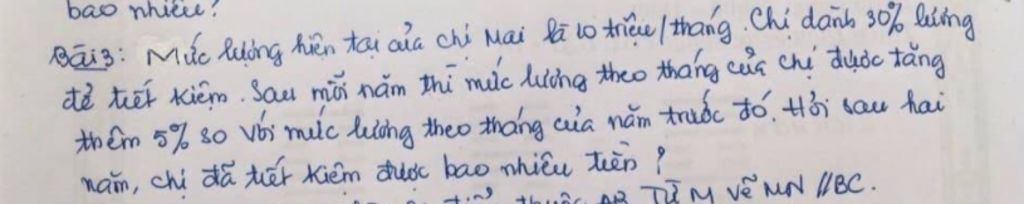 bao nhiêu?
Bài 3: Mức lượng hiện tại của chị Mai là 10 triệu/tháng. Chị dành 30% lương
để tiết kiệm. Sau mỗi năm thì mức lương theo tháng của chị được tăng
thêm 5% so với mức lương theo tháng của năm trước đó. Hỏi sau hai
năm, chị đã tiết kiệm được bao nhiêu tiền?
thuộc AB Từ M vẽ MN //BC.